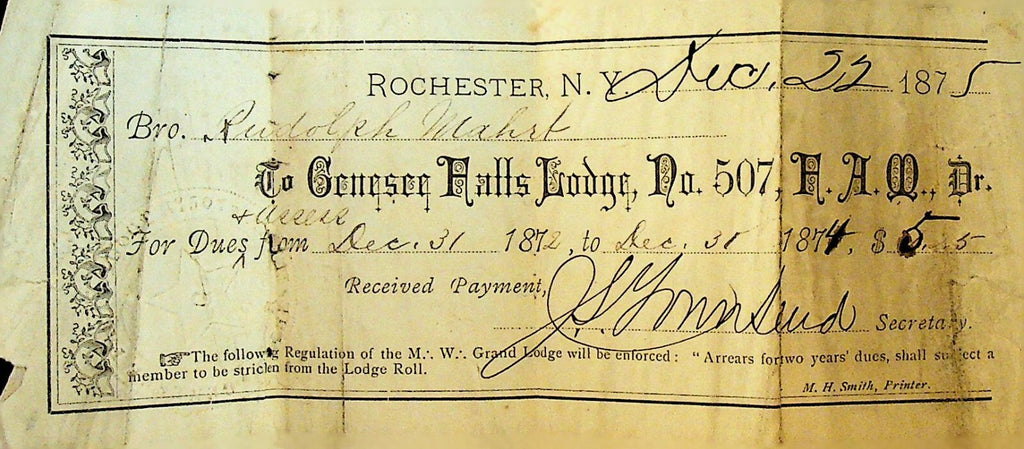 ROCHESTER, N. Y. Dec. 22 1875
Bro. Rudolph Mahrt
To Genesee Falls Lodge, No. 507, F. A. M., Dr.
& assess
For Dues from Dec. 31 1872, to Dec. 31 1874, $ 5
Received Payment,
J. S. Townsend Secretary.
☞The following Regulation of the M∴ W∴ Grand Lodge will be enforced: "Arrears for two years' dues, shall subject a
member to be stricken from the Lodge Roll.
M. H. Smith, Printer.